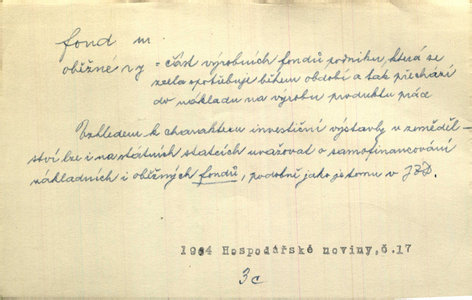 fond m
oběžné ~y = část výrobních fondů podniku, která se
zcela spotřebuje během období a tak přechází
do nákladu na výrobu produktu práce
Vzhledem k charakteru investiční výstavby v zeměděl-
ství lze i na státních statcích uvažovat o samofinancování
základních i oběžných fondů, podobně jako je tomu v JZD.
1964 Hospodářské noviny, č. 17
3c